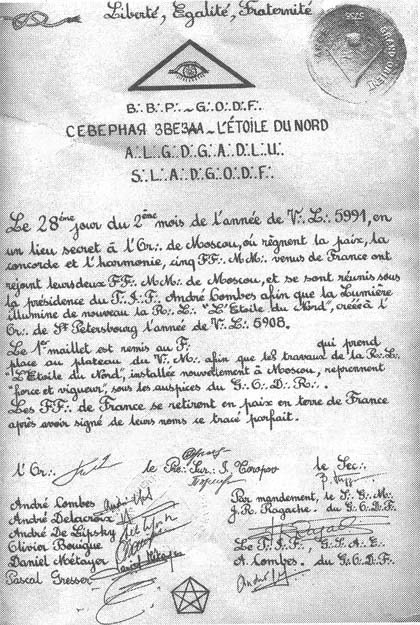 Liberté, Egalité, Fraternité
GRAND ORIENT
B∴B∴P∴~G∴O∴D∴F∴
СЕВЕРНАЯ ЗВЕЗДА~L'ÉTOILE DU NORD
A∴L∴G∴D∴G∴A∴D∴L∴U∴
S∴L∴A∴D∴G∴O∴D∴F∴
Le 28ème jour du 2ème mois de l'année de V∴L∴ 5991, en
un lieu secret à l'Or∴ de Moscou, où règnent la paix, la
concorde et l'harmonie, cinq FF∴MM∴ venus de France ont
rejoint leurs deux FF∴MM∴ de Moscou, et se sont réunis sous
la présidence du T∴I∴F∴ André Combes afin que la Lumière
illumine de nouveau la R∴L∴ "L'Etoile du Nord", créée à l'
Or∴ de St Petersbourg l'année de V∴L∴ 5908.
Le 1er maillet est remis au F∴ qui prend
place au plateau du V∴M∴ afin que les travaux de la R∴L∴
"L'Etoile du Nord", installée nouvellement à Moscou, reprennent
"force et vigueur", sous les auspices du G∴O∴D∴
Les FF∴ de France se retirent en paix en terre de France
après avoir signé de leurs noms ce tracé parfait.
l'Or∴ le Pr∴Sur∴ le Sec∴
André Combes
André Delacroix
André De Lipsky
Olivier Bouigue
Daniel Moëtayer
Pascal Gresser
Par mandement, le S∴G∴M∴
J.R. Ragache. du G∴O∴D∴F∴
Le T∴I∴F∴, G∴S∴A∴E∴
A. Combes. du G∴O∴D∴F∴